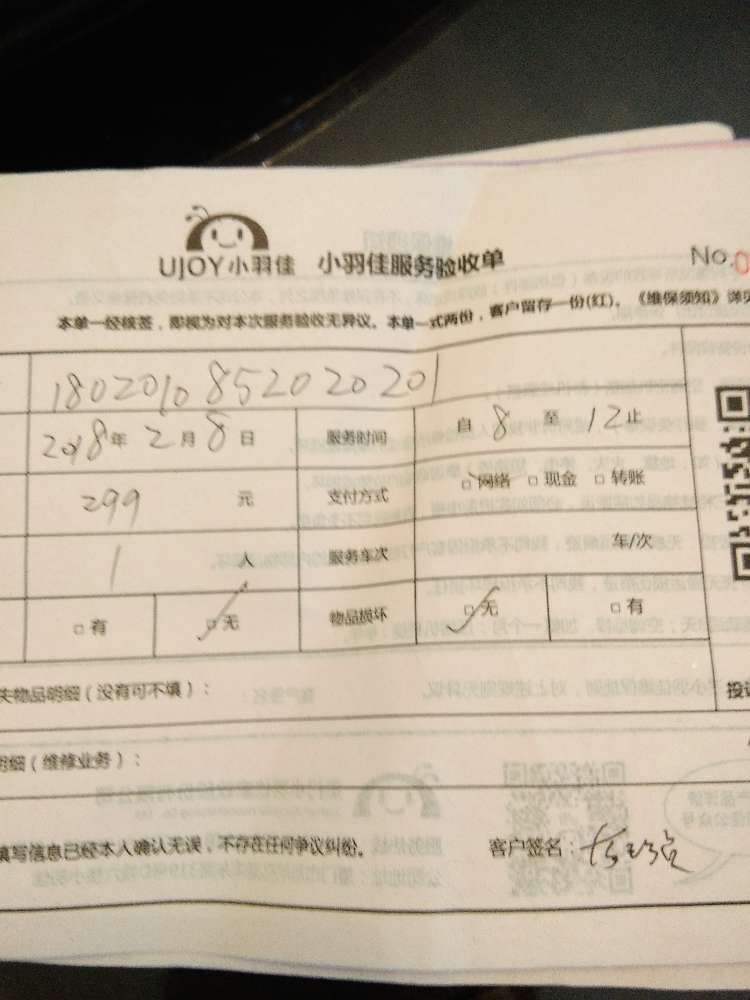 UJOY小羽佳 小羽佳服务验收单 No.0
本单一经核签，即视为对本次服务验收无异议。本单一式两份，客户留存一份(红)。《维保须知》详见
1802010852020201
2018年2月8日 服务时间 自8至12止
299元 支付方式 □网络 □现金 □转账
1人 服务车次 车/次
□有 □无 物品损坏 □无 □有
失物品明细（没有可不填）： 投诉
明细（维修业务）：
填写信息已经本人确认无误，不存在任何争议纠纷。 客户签名：